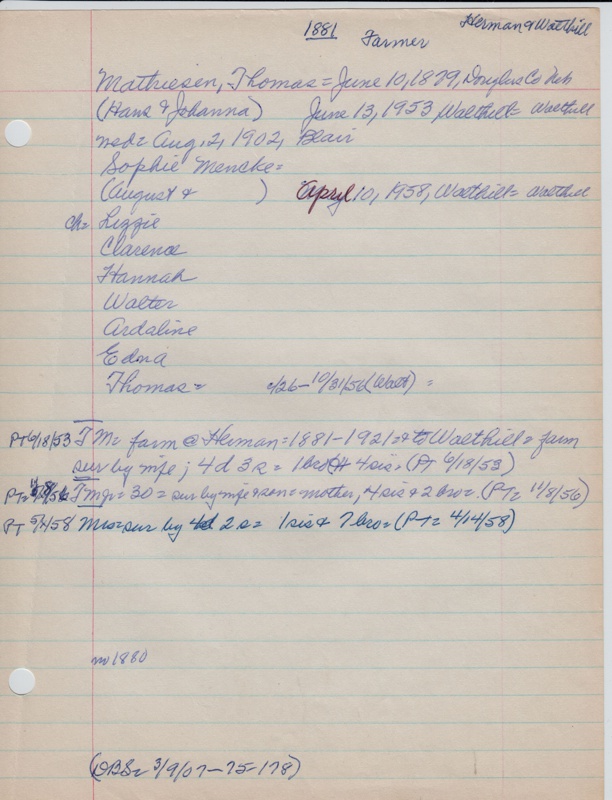 1881
Herman & Walthill
Farmer
Mathiesen, Thomas = June 10, 1879, Douglas Co Neb
(Hans & Johanna) June 13, 1953, Walthill = Walthill
med = Aug, 2, 1902, Blair
Sophie Mencke =
(August & ) April 10, 1958, Walthill = Walthill
ch = Lizzie
Clarence
Hannah
Walter
Ardaline
Edna
Thomas = /26 - 10/31/56 (Walt) =
PT 6/18/53 TM = farm @ Herman = 1881-1921 = & to Walthill = farm
sur by wife; 4 d 3 s = 1 bro & 4 sis. (PT 6/18/53)
PT = 11/8/56 TM Jr = 30 = sur by wife & son = mother, 4 sis & 2 bro = (PT = 11/8/56)
PT 5/1/58 Mrs = sur by 4d 2 s = 1 sis & 7 bro = (PT = 4/14/58)
no 1880
(DBS = 3/9/07-75-178)